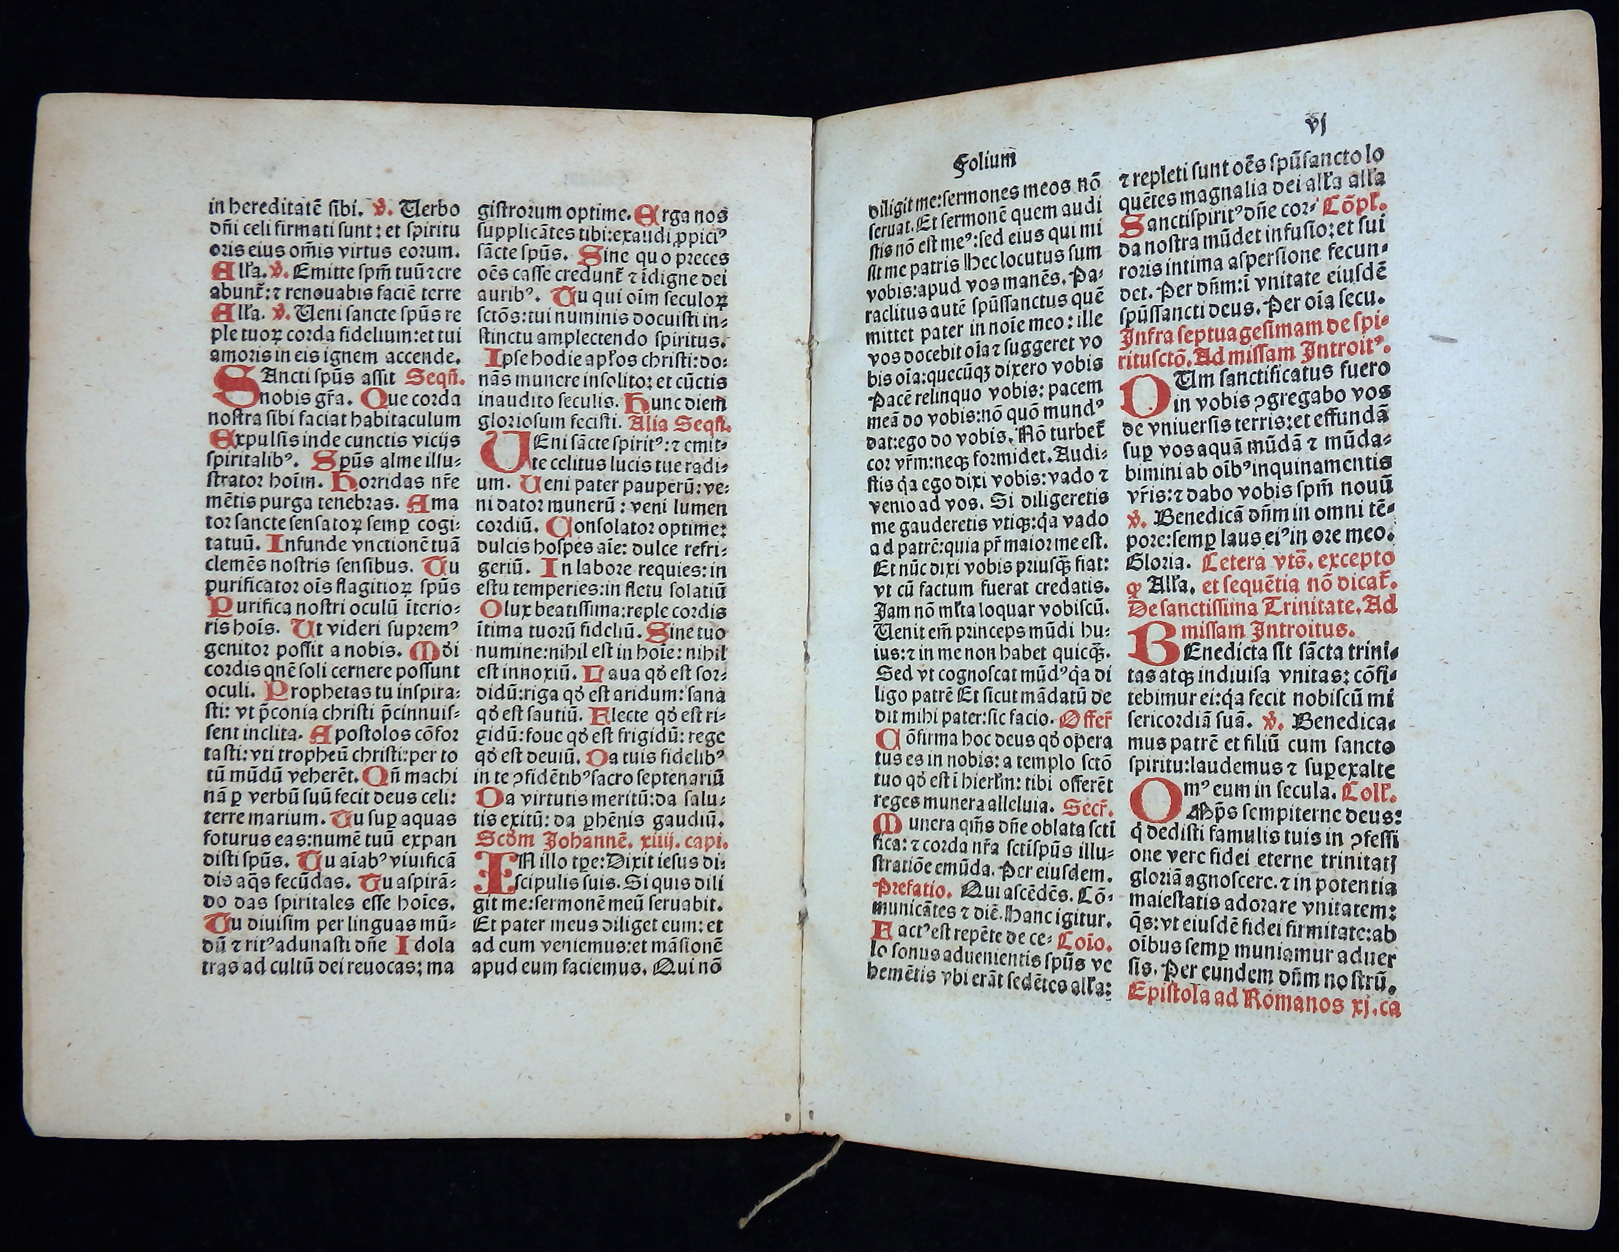 in hereditatē sibi. v̄. Uerbo
dn̄i celi firmati sunt: et spiritu
oris eius om̄is virtus eorum.
All'a. v̄. Emitte spm̄ tuū ⁊ cre
abunt̄: ⁊ renouabis faciē terre
All'a. v̄. Ueni sancte spūs re
ple tuoꝝ corda fidelium: et tui
amoris in eis ignem accende.
SAncti spūs assit Seqn̄.
nobis gr̄a. Que corda
nostra sibi faciat habitaculum
Expulsis inde cunctis vicijs
spiritalibꝰ. Spūs alme illu-
strator hoīm. Horridas nr̄e
mētis purga tenebras. Ama
tor sancte sensatoꝝ semꝑ cogi-
tatuū. Infunde vnctionē tuā
clemēs nostris sensibus. Tu
purificator oīs flagitioꝝ spūs
Purifica nostri oculū īterio-
ris hoīs. Ut videri supremꝰ
genitor possit a nobis. Mūdi
cordis quē soli cernere possunt
oculi. Prophetas tu inspira-
sti: vt p̄conia christi p̄cinuis-
sent inclita. Apostolos cōfor
tasti: vti tropheū christi: per to
tū mūdū veherēt. Qn̄ machi
nā ꝑ verbū suū fecit deus celi:
terre marium. Tu suꝑ aquas
foturus eas: numē tuū expan
disti spūs. Tu aīabꝰ viuificā
dis aq̄s fecūdas. Tu aspirā-
do das spiritales esse hoīes.
Tu diuisim per linguas mū-
dū ⁊ ritꝰ adunasti dn̄e Idola
tras ad cultū dei reuocas: ma
gistrorum optime. Erga nos
supplicātes tibi: exaudi ꝓpiciꝰ
sācte spūs. Sine quo preces
oēs casse credunt̄ ⁊ īdigne dei
auribꝰ. Tu qui oīm seculoꝝ
sctōs: tui numinis docuisti in-
stinctu amplectendo spiritus.
Ipse hodie apl'os christi: do-
nās munere insolito: et cūctis
inaudito seculis. Hunc diem
gloriosum fecisti. Alia Seqn̄.
UEni sācte spiritꝰ: ⁊ emit-
te celitus lucis tue radi-
um. Ueni pater pauperū: ve-
ni dator munerū: veni lumen
cordiū. Consolator optime:
dulcis hospes aīe: dulce refri-
geriū. In labore requies: in
estu temperies: in fletu solatiū
O lux beatissima: reple cordis
ītima tuorū fideliū. Sine tuo
numine: nihil est in hoīe: nihil
est innoxiū. Laua qd̄ est sor-
didū: riga qd̄ est aridum: sana
qd̄ est sautiū. Flecte qd̄ est ri-
gidū: foue qd̄ est frigidū: rege
qd̄ est deuiū. Da tuis fidelibꝰ
in te ꝯfidētibꝰ sacro septenariū
Da virtutis meritū: da salu-
tis exitū: da ꝑhēnis gaudiū.
Scd̄m Johannē. xiiij. capi.
IN illo tꝑe: Dixit iesus di-
scipulis suis. Si quis dili
git me: sermonē meū seruabit.
Et pater meus diliget eum: et
ad eum veniemus: et māsionē
apud eum faciemus. Qui nō
Folium
diligit me: sermones meos nō
seruat. Et sermonē quem audi
stis nō est meꝰ: sed eius qui mi
sit me patris Hec locutus sum
vobis: apud vos manēs. Pa-
raclitus autē spūssanctus quē
mittet pater in noīe meo: ille
vos docebit oīa ⁊ suggeret vo
bis oīa: quecūqꝫ dixero vobis
Pacē relinquo vobis: pacem
meā do vobis: nō quō mundꝰ
dat: ego do vobis. Nō turbet̄
cor vr̄m: neqꝫ formidet. Audi-
stis q̇a ego dixi vobis: vado ⁊
venio ad vos. Si diligeretis
me gauderetis vtiqꝫ: q̇a vado
ad patrē: quia pr̄ maior me est.
Et nūc dixi vobis priusqꝫ̄ fiat:
vt cū factum fuerat credatis.
Jam nō ml'ta loquar vobiscū.
Uenit em̄ princeps mūdi hu-
ius: ⁊ in me non habet quicqꝫ̄.
Sed vt cognoscat mūdꝰ q̇a di
ligo patrē Et sicut mādatū de
dit mihi pater: sic facio. Offer̄
Cōfirma hoc deus qd̄ opera
tus es in nobis: a templo sctō
tuo qd̄ est ī hierl'm: tibi offerēt
reges munera alleluia. Secr̄.
Munera qm̄s dn̄e oblata scti
fica: ⁊ corda nr̄a sctīspūs illu-
stratiōe emūda. Per eiusdem.
Prefatio. Qui ascēdēs. Cō-
municātes ⁊ diē. Hanc igitur.
Factꝰ est repēte de ce- Coīo.
lo sonus aduenientis spūs ve
hemētis vbi erāt sedētes all'a:
vj
⁊ repleti sunt oēs spūsancto lo
quētes magnalia dei all'a all'a
Sanctispiritꝰ dn̄e cor- Cōpl'.
da nostra mūdet infusio: et sui
roris intima aspersione fecun-
det. Per dn̄m: ī vnitate eiusdē
spūssancti deus. Per oīa secu.
Infra septuagesimam de spi-
ritusctō. Ad missam Introitꝰ.
DUm sanctificatus fuero
in vobis ꝯgregabo vos
de vniuersis terris: et effundā
suꝑ vos aquā mūdā ⁊ mūda-
bimini ab oībꝰ inquinamentis
vr̄is: ⁊ dabo vobis spm̄ nouū
v̄. Benedicā dn̄m in omni tē-
pore: semꝑ laus eiꝰ in ore meo.
Gloria. Cetera vts̄. excepto
ꝙ All'a. et sequētia nō dicat̄.
De sanctissima Trinitate. Ad
missam Introitus.
BEnedicta sit sācta trini-
tas atqꝫ indiuisa vnitas: cōfi-
tebimur ei: q̇a fecit nobiscū mi
sericordiā suā. v̄. Benedica-
mus patrē et filiū cum sancto
spiritu: laudemus ⁊ suꝑexalte
mꝰ eum in secula. Coll'.
OMp̄s sempiterne deus:
q̇ dedisti famulis tuis in ꝯfessi
one vere fidei eterne trinitatis
gloriā agnoscere. ⁊ in potentia
maiestatis adorare vnitatem:
qs̄: vt eiusdē fidei firmitate: ab
oībus semꝑ muniamur aduer
sis. Per eundem dn̄m nostrū.
Epistola ad Romanos xj. ca